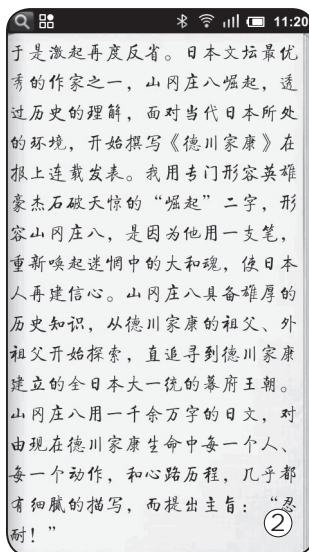 11:20
于是激起再度反省。日本文坛最优
秀的作家之一，山冈庄八崛起，透
过历史的理解，面对当代日本所处
的环境，开始撰写《德川家康》在
报上连载发表。我用专门形容英雄
豪杰石破天惊的“崛起”二字，形
容山冈庄八，是因为他用一支笔，
重新唤起迷惘中的大和魂，使日本
人再建信心。山冈庄八具备雄厚的
历史知识，从德川家康的祖父、外
祖父开始探索，直追寻到德川家康
建立的全日本大一统的幕府王朝。
山冈庄八用一千余万字的日文，对
由现在德川家康生命中每一个人、
每一个动作，和心路历程，几乎都
有细腻的描写，而提出主旨：“忍
耐！”
②